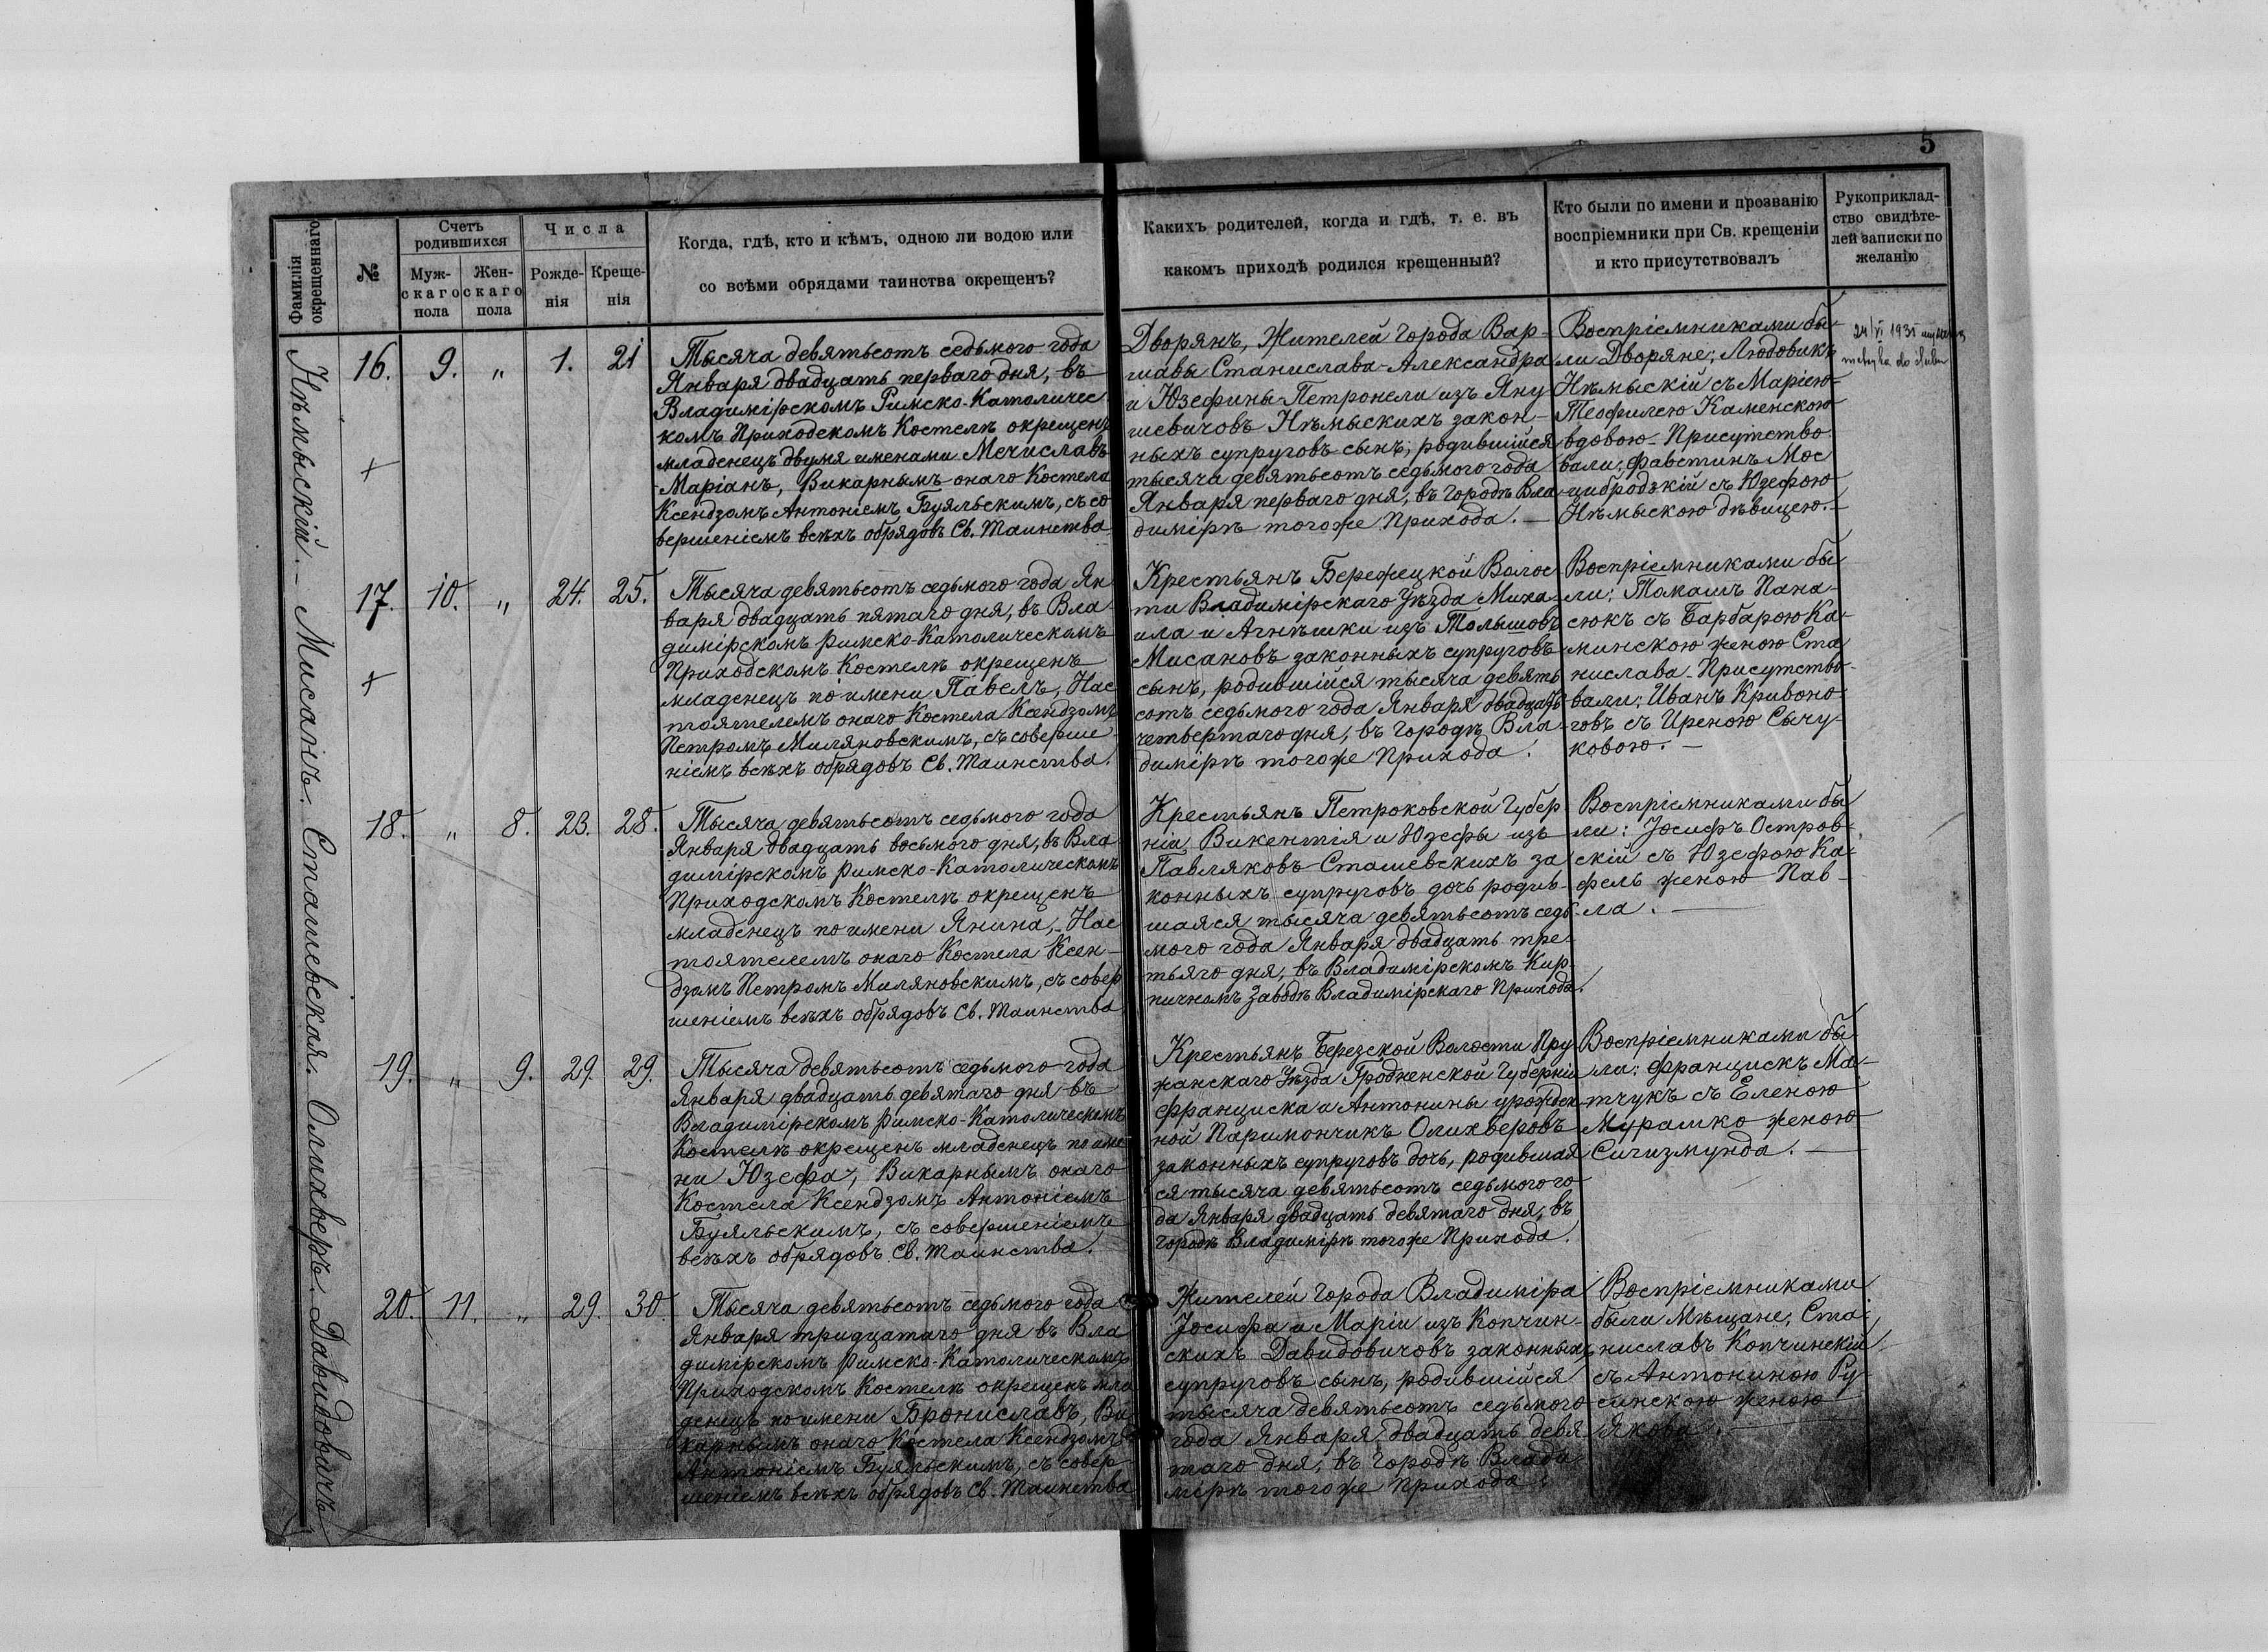 5
Фамилія окрещеннаго
№
Счетъ родившихся
Муж-
скаго
пола
Жен-
скаго
пола
Числа
Рожде-
нія
Креще-
нія
Когда, гдѣ, кто и кѣмъ, одною ли водою или
со всѣми обрядами таинства окрещенъ?
Какихъ родителей, когда и гдѣ, т. е. въ
какомъ приходѣ родился крещенный?
Кто были по имени и прозванію
воспріемники при Св. крещеніи
и кто присутствовалъ
Рукоприклад-
ство свидѣте-
лей записки по
желанію
Нѣмыскій.–
16. 9. „ 1. 21
+
Тысяча девятьсотъ седьмого года
Января двадцать перваго дня, въ
Владимірскомъ Римско-Католичес-
комъ Приходскомъ Костелѣ окрещенъ
младенецъ двумя именами Мечиславъ
-Маріанъ, Викарнымъ онаго Костела
Ксендзомъ Антоніемъ Буяльскимъ, съ со
вершеніемъ всѣхъ обрядовъ Св. Таинства
Дворянъ, Жителей Города Вар-
шавы Станислава-Александра
и Юзефины-Петронели изъ Яну
шевичовъ Нѣмыскихъ закон-
ныхъ супруговъ сынъ, родившійся
тысяча девятьсотъ седьмого года
Января перваго дня, въ Городѣ Вла-
димірѣ тогоже Прихода.–
Воспріемниками бы-
ли Дворяне, Людовикъ
Нѣмыскій съ Маріею-
Теофилею Каменскою
вдовою-Присутство
вали, Фавстинъ Мос
цибродзкій съ Юзефою
Нѣмыскою дѣвицею.–
24/VI 1931
metryka do ślubu
Мисанъ.
17. 10. „ 24. 25.
+
Тысяча девятьсотъ седьмого года Ян
варя двадцать пятаго дня, въ Вла-
димірскомъ Римско-Католическомъ
Приходскомъ Костелѣ окрещенъ
младенецъ по имени Павелъ, Нас
тоятелемъ онаго Костела Ксендзомъ
Петромъ Миляновскимъ, съ соверше
ніемъ всѣхъ обрядовъ Св. Таинства.
Крестьянъ Бережецкой Волос-
ти Владимірскаго Уѣзда Миха-
ила и Агнѣшки изъ Толышовъ
Мисановъ законныхъ супруговъ
сынъ, родившійся тысяча девять
сотъ седьмого года Января двадцать
четвертаго дня, въ Городѣ Вла-
димірѣ тогоже Прихода.
Воспріемниками бы
ли: Томашъ Пана-
сюкъ съ Барбарою Ка-
минскою женою Ста
нислава-Присутство-
вали: Иванъ Кривоно-
говъ съ Иреною Сычу-
ковою.–
Сташевская.
18. „ 8. 23. 28.
Тысяча девятьсотъ седьмого года
Января двадцать восьмого дня, въ Вла
димірскомъ Римско-Католическомъ
Приходскомъ Костелѣ окрещенъ
младенецъ по имени Янина, Нас
тоятелемъ онаго Костела Ксен-
дзомъ Петромъ Миляновскимъ, съ совер
шеніемъ всѣхъ обрядовъ Св. Таинства
Крестьянъ Петроковской Губер
ніи, Викентія и Юзефы изъ
Павляковъ-Сташевскихъ за
конныхъ супруговъ дочь родив-
шаяся тысяча девятьсотъ седь-
мого года Января двадцать тре-
тьяго дня, въ Владимірскомъ Кир-
пичномъ Заводѣ Владимірскаго Прихода.
Воспріемниками бы
ли: Іосифъ Остров-
скій съ Юзефою Ка-
фель женою Пав-
ла.–
Олихверъ.
19. „ 9. 29. 29.
Тысяча девятьсотъ седьмого года
Января двадцать девятаго дня въ
Владимірскомъ Римско-Католическомъ
Костелѣ окрещенъ младенецъ по име
ни Юзефа, Викарнымъ онаго
Костела Ксендзомъ Антоніемъ
Буяльскимъ, съ совершеніемъ
всѣхъ обрядовъ Св. Таинства.
Крестьянъ Березской Волости Пру
жанскаго Уѣзда Гродненской Губерніи
Франциска и Антонины урожден-
ной Паримончикъ Олихверовъ
законныхъ супруговъ дочь, родившая
ся тысяча девятьсотъ седьмого го
да Января двадцать девятаго дня, въ
Городѣ Владимірѣ тогоже Прихода.
Воспріемниками бы
ли: Францискъ Ма-
тчукъ съ Еленою
Мурашко женою
Сигизмунда.–
Давидовичъ
20. 11. „ 29. 30.
Тысяча девятьсотъ седьмого года
Января тридцатаго дня въ Вла
димірскомъ Римско-Католическомъ
Приходскомъ Костелѣ окрещенъ мла
денецъ по имени Брониславъ, Ви
карнымъ онаго Костела Ксендзомъ
Антоніемъ Буяльскимъ, съ совер-
шеніемъ всѣхъ обрядовъ Св. Таинства
Жителей Города Владиміра
Іосифа и Маріи изъ Копчин-
скихъ Давидовичовъ законныхъ
супруговъ сынъ, родившійся
тысяча девятьсотъ седьмого
года Января двадцать девя
таго дня, въ Городѣ Влади
мірѣ тогоже Прихода.
Воспріемниками
были Мѣщане, Ста-
ниславъ Копчинскій
съ Антониною Ру-
синскою женою
Якова.–